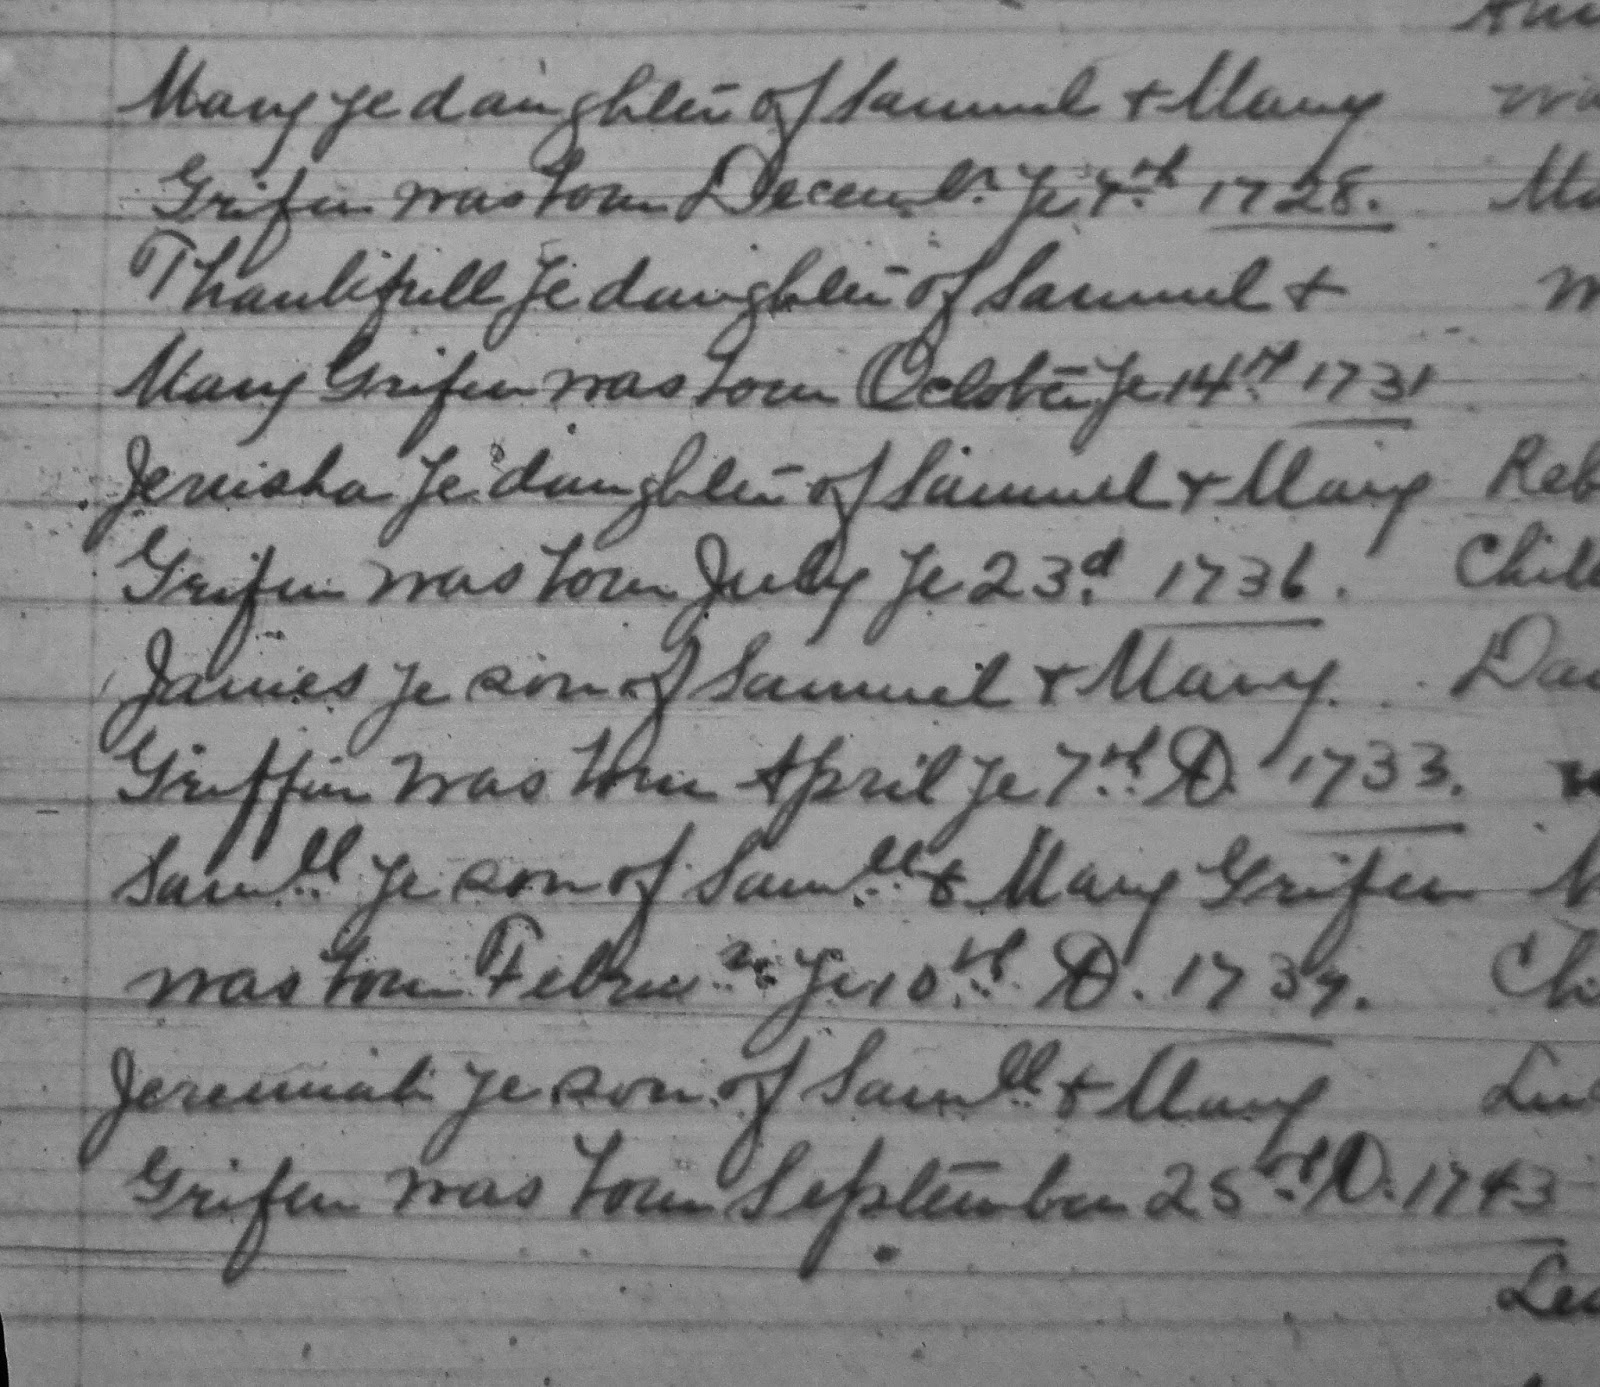 Mary ye daughter of Samuel + Mary
Grifen was born Decemr. ye 7th 1728.
Thankfull ye daughter of Samuel +
Mary Grifen was born October ye 14th 1731
Jerusha ye daughter of Samuel + Mary
Grifen was born July ye 23d 1736.
James ye son of Samuel + Mary
Griffin was born April ye 7th D. 1733.
Samll ye son of Samll + Mary Grifen
was born ye 10th D. 1739.
Jeremiah ye son of Samll + Mary
Grifen was born September 25th D. 1743
Reb
Chil
Da